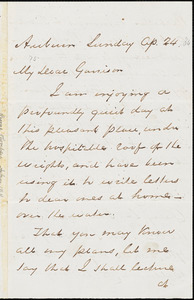 Auburn Sunday Ap. 24
My Dear Garrison
I am enjoying a
profoundly quiet day at
this pleasant place, under
the hospitable roof of the
Wrights, and have been
using it to write letters
to dear ones at home
over the water.
That you may know
all my plans, let me
say that I shall lecture
at